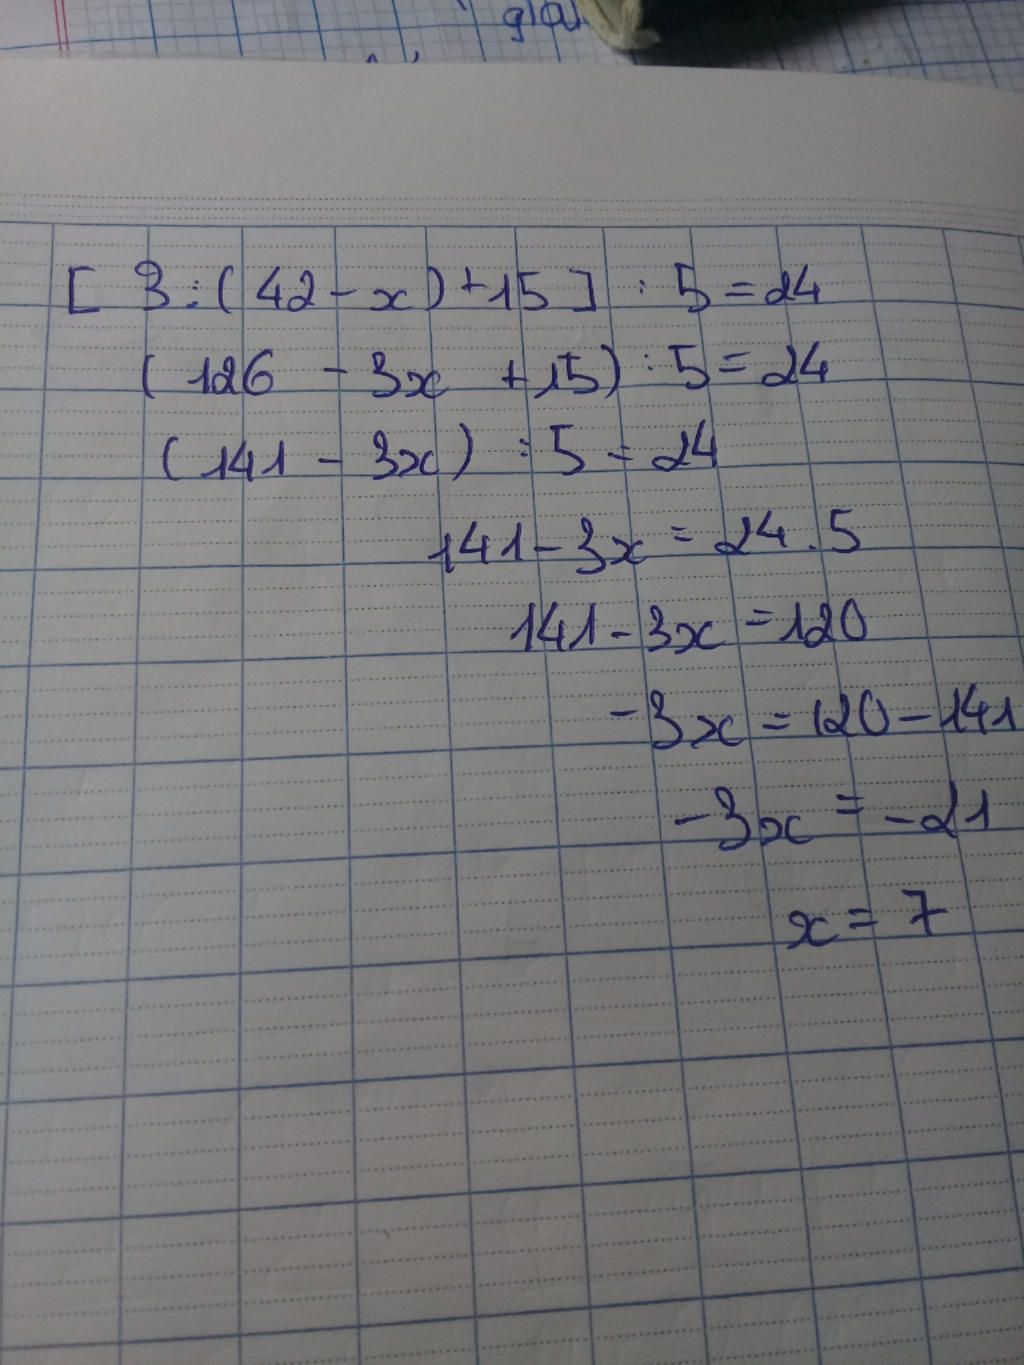 [ 3 : ( 42 - x ) + 15 ] : 5 = 24
( 126 - 3x + 15 ) : 5 = 24
( 141 - 3x ) : 5 = 24
141 - 3x = 24 . 5
141 - 3x = 120
-3x = 120 - 141
-3x = -21
x = 7